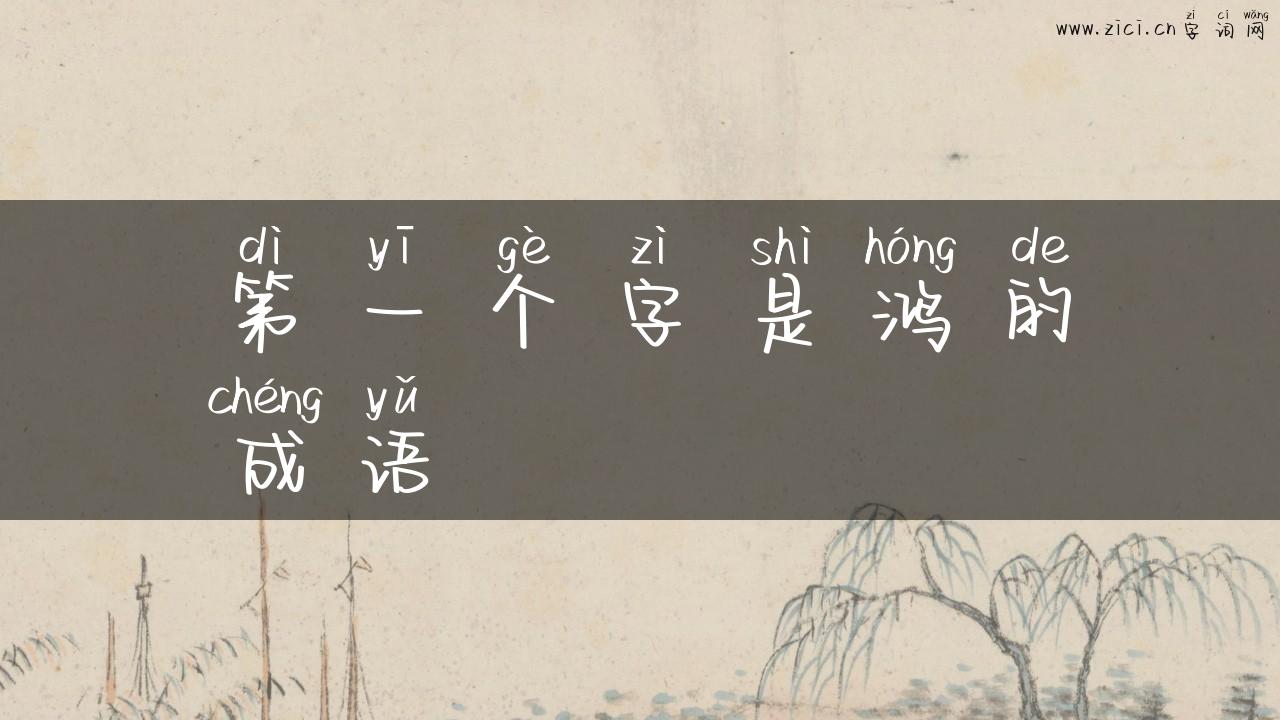 zì cí wǎng
www.zici.cn 字词网
dì yī gè zì shì hóng de
第一个字是鸿的
chéng yǔ
成语